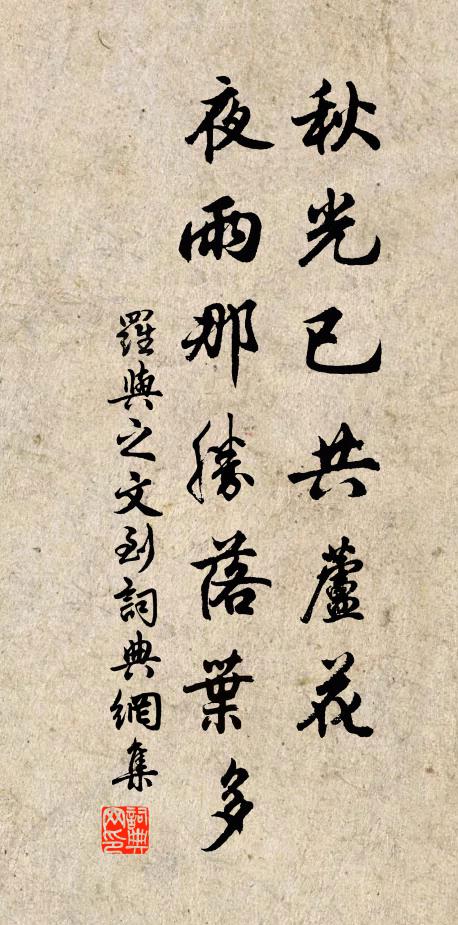 秋光已共蘆花
夜雨那勝落葉多
羅與之文到詞典網集
詞典网印